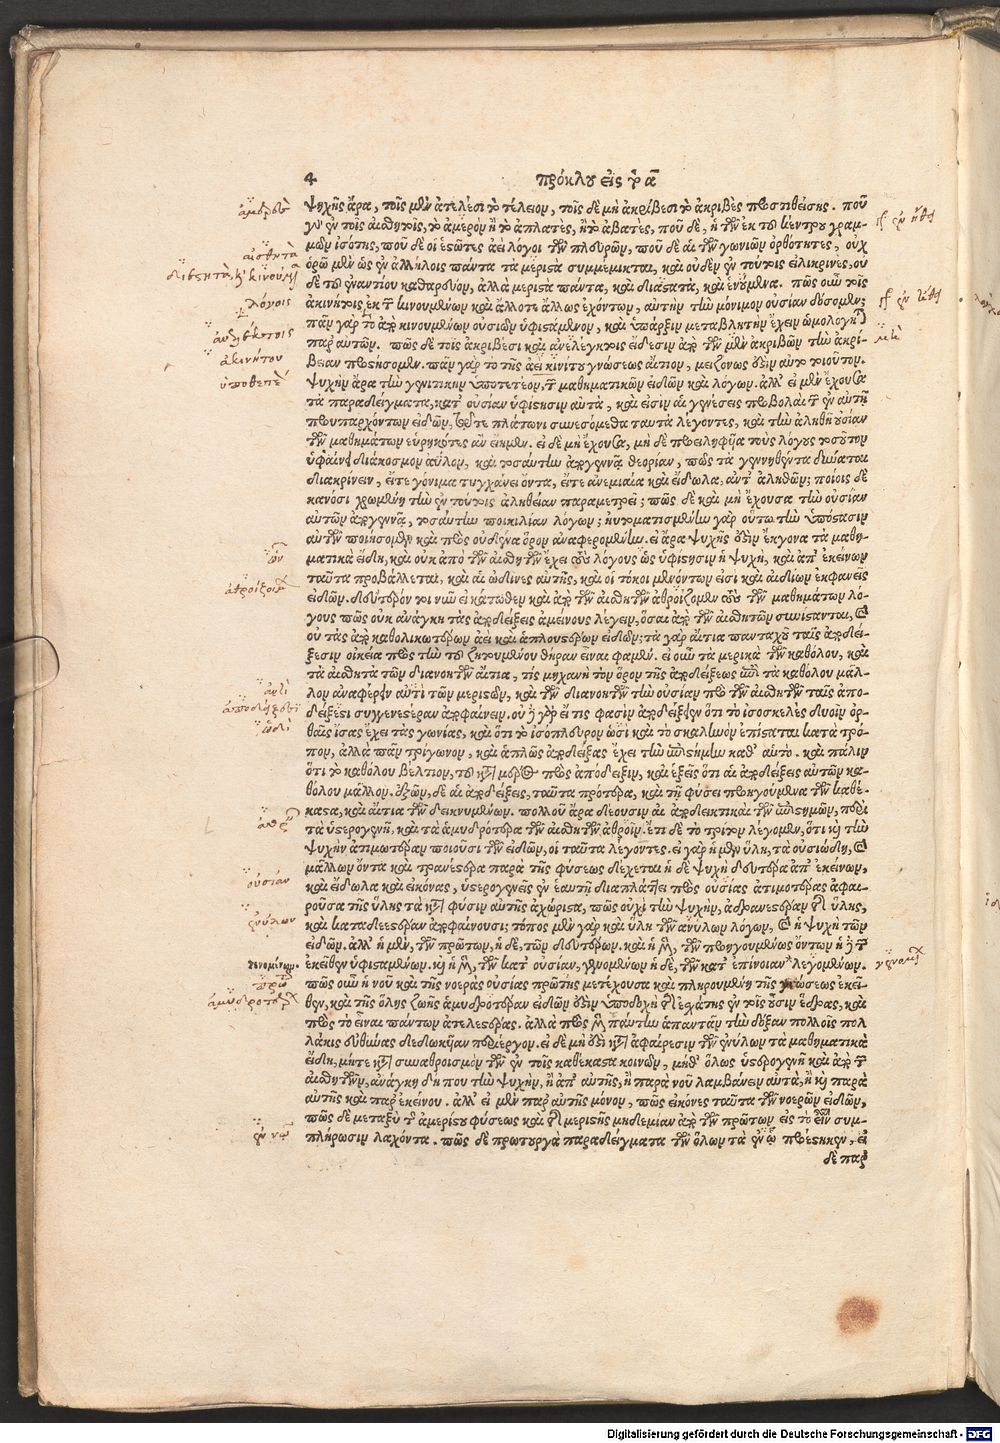 4 πρόκλου εἰς τὸ α
ψυχῆς ἄρα, τοῖς μὲν ἀτελέσι τὸ τέλειον, τοῖς δὲ μὴ ἀκρίβεσι τὸ ἀκριβὲς προστιθείσης. ποῦ
γὰρ ἐν τοῖς αἰσθητοῖς, τὸ ἀμερὸν ἢ τὸ ἀπλατὲς, ἢ τὸ ἀβατὲς, ποῦ δὲ, ἡ τῶν ἐκ τοῦ κέντρου γραμ-
μῶν ἰσότης, ποῦ δὲ οἱ ἑστῶτες ἀεὶ λόγοι τῶν πλευρῶν, ποῦ δὲ αἱ τῶν γωνιῶν ὀρθότητες, οὐχ
ὁρῶ μὲν ὡς ἐν ἀλλήλοις πάντα τὰ μεριστὰ συμμέμικται, καὶ οὐδὲν ἐν τούτοις εἰλικρινὲς, οὐ
δὲ τοῦ ἐναντίου καθαρεῦον, ἀλλὰ μεριστὰ πάντα, καὶ διαστατὰ, καὶ ἑνούμενα. πῶς οὖν τοῖς
ἀκινήτοις ἐκ τῶν κινουμένων καὶ ἄλλοτε ἄλλως ἐχόντων, αὐτὴν τὴν μόνιμον οὐσίαν δώσομεν;
πᾶν γὰρ τὸ ἀπὸ κινουμένων οὐσιῶν ὑφιστάμενον, καὶ ὕπαρξιν μεταβλητὴν ἔχειν ὡμολόγηται
παρ' αὐτῶν. πῶς δὲ τοῖς ἀκριβέσι καὶ ἀνελέγκτοις εἴδεσιν ἀπὸ τῶν μὲν ἀκριβῶν τὴν ἀκρί-
βειαν προσθήσομεν. πᾶν γὰρ τὸ τῆς ἀεὶ κινήτου γνώσεως αἴτιον, μειζόνως ἐστὶν αὐτὸ τοιοῦτον.
ψυχὴν ἄρα τὴν γενιτικὴν ὑποτετέον, τῶν μαθηματικῶν εἰδῶν καὶ λόγων. ἀλλ' εἰ μὲν ἔχουσα
τὰ παραδείγματα, κατ' οὐσίαν ὑφίστησιν αὐτὰ, καὶ εἰσὶν αἱ γενέσεις προβολαὶ τῶν ἐν αὐτῇ
προυπαρχόντων εἰδῶν, τῷ τε πλάτωνι συνεσόμεθα ταυτὰ λέγοντες, καὶ τὴν ἀληθῆ οὐσίαν
τῶν μαθημάτων εὑρηκότες ἂν εἴημεν. εἰ δὲ μὴ ἔχουσα, μὴ δὲ προειληφυῖα τοὺς λόγους τοσοῦτον
ὑφαίνει διάκοσμον ἄυλον, καὶ τοσαύτην ἀπογεννᾷ θεορίαν, πῶς τὰ γεννηθέντα δύναται
διακρίνειν, εἴτε γόνιμα τυγχάνει ὄντα, εἴτε ἀνεμιαῖα καὶ εἴδωλα, ἀντ' ἀληθῶν; ποίοις δὲ
κανόσι χρωμένη τὴν ἐν τούτοις ἀληθείαν παραμετρεῖ; πῶς δὲ καὶ μὴ ἔχουσα τὴν οὐσίαν
αὐτῶν ἀπογεννᾷ, τοσαύτην ποικιλίαν λόγων; ηὐτοματισμένην γὰρ οὕτω τὴν ὑπόστασιν
αὐτῶν ποιήσομεν καὶ πρὸς οὐδένα ὅρον ἀναφερομένην. εἰ ἄρα ψυχῆς ἐστὶν ἔκγονα τὰ μαθη-
ματικὰ εἴδη, καὶ οὐκ ἀπὸ τῶν αἰσθητῶν ἔχει τοὺς λόγους ὡς ὑφίστησιν ἡ ψυχὴ, καὶ ἀπ' ἐκείνων
ταῦτα προβάλλεται, καὶ αἱ ὠδῖνες αὐτῆς, καὶ οἱ τόκοι μενόντων εἰσὶ καὶ ἀιδίων ἐκφανεῖς
εἰδῶν. δεύτερόν τοι νῦν εἰ κάτωθεν καὶ ἀπὸ τῶν αἰσθητῶν ἀθροίζομεν τοὺς τῶν μαθημάτων λό-
γους πῶς οὐκ ἀνάγκη τὰς ἀποδείξεις ἀμείνους λέγειν, ὅσαι ἀπὸ τῶν αἰσθητῶν συνίστανται, καὶ
οὐ τὰς ἀπὸ καθολικωτέρων ἀεὶ καὶ ἁπλουστέρων εἰδῶν; τὰ γὰρ αἴτια πανταχοῦ ταῖς ἀποδεί-
ξεσιν οἰκεῖα πρὸς τὴν τοῦ ζητουμένου θήραν εἶναι φαμέν. εἰ οὖν τὰ μερικὰ τῶν καθόλου, καὶ
τὰ αἰσθητὰ τῶν διανοητῶν αἴτια, τίς μηχανὴ τὸν ὅρον τῆς ἀποδείξεως ἐπὶ τὰ καθόλου μᾶλ-
λον ἀναφέρειν ἀντὶ τῶν μεριστῶν, καὶ τῶν διανοητῶν τὴν οὐσίαν πρὸ τῶν αἰσθητῶν ταῖς ἀπο-
δείξεσι συγγενεστέραν ἀποφαίνειν. οὐ γὰρ εἴ τις φασὶν ἀποδείξειεν ὅτι τὸ ἰσοσκελὲς δυοῖν ὀρ-
θαῖς ἴσας ἔχει τὰς γωνίας, καὶ ὅτι τὸ ἰσόπλευρον ὡσὶ καὶ τὸ σκαληνὸν ἐπίσταται κατὰ τρό-
πον, ἀλλὰ πᾶν τρίγωνον, καὶ ἁπλῶς ἀποδείξας ἔχει τὴν ἐπιστήμην καθ' αὑτό. καὶ πάλιν
ὅτι τὸ καθόλου βέλτιον, τοῦ κατὰ μέρος πρὸς ἀπόδειξιν, καὶ ἑξῆς ὅτι αἱ ἀποδείξεις αὐτῶν κα-
θόλου μᾶλλον. ἐξ ὧν, δὲ αἱ ἀποδείξεις, ταῦτα πρότερα, καὶ τῇ φύσει προηγούμενα τῶν καθέ-
καστα, καὶ αἴτια τῶν δεικνυμένων. πολλοῦ ἄρα δέουσιν αἱ ἀποδεικτικαὶ τῶν ἐπιστημῶν, περὶ
τὰ ὑστερογενῆ, καὶ τὰ ἀμυδρότερα τῶν αἰσθητῶν ἀθροῖν. ἔτι δὲ τὸ τρίτον λέγομεν, ὅτι καὶ τὴν
ψυχὴν ἀτιμωτέραν ποιοῦσι τῶν εἰδῶν, οἱ ταῦτα λέγοντες. εἰ γὰρ ἡ μὲν ὕλη, τὰ οὐσιώδη, καὶ
μᾶλλον ὄντα καὶ τρανέστερα παρὰ τῆς φύσεως δέχεται ἡ δὲ ψυχὴ δεύτερα ἀπ' ἐκείνων,
καὶ εἴδωλα καὶ εἰκόνας, ὑστερογενεῖς ἐν ἑαυτῇ διαπλάττει πρὸς οὐσίας ἀτιμοτέρας ἀφαι-
ροῦσα τῆς ὕλης τὰ κατὰ φύσιν αὐτῆς ἀχώριστα, πῶς οὐχὶ τὴν ψυχὴν, ἀδρανεστέραν τῆς ὕλης,
καὶ καταδεεστέραν ἀποφαίνουσι; τόπος μὲν γὰρ καὶ ὕλη τῶν ἀνύλων λόγων, καὶ ἡ ψυχὴ τῶν
εἰδῶν. ἀλλ' ἡ μὲν, τῶν πρώτων, ἡ δὲ, τῶν δευτέρων. καὶ ἡ μὲν, τῶν προηγουμένως ὄντων ἡ δὲ τῶν
ἐκεῖθεν ὑφισταμένων. καὶ ἡ μὲν, τῶν κατ' οὐσίαν, γενομένων ἡ δὲ, τῶν κατ' ἐπίνοιαν* λεγομένων.
πῶς οὖν ἡ νοῦ καὶ τῆς νοερᾶς οὐσίας πρώτης μετέχουσα καὶ πληρουμένη τῆς γνώσεως ἐκεῖ-
θεν, καὶ τῆς ὅλης ζωῆς ἀμυδροτέραν εἰδῶν ἐστὶν ὑποδοχὴ τῆς ἐσχάτης ἐν τοῖς οὖσιν ἕδρας, καὶ
πρὸς τὸ εἶναι πάντων ἀτελεστέρας. ἀλλὰ πρὸς μὲν ταύτην ἀπαντᾶν τὴν δόξαν πολλοῖς πολ
λάκις εὐθύνας δεδωκυῖαν περίεργον. εἰ δὲ μὴ ἐστὶ κατὰ ἀφαίρεσιν τῶν ἐνύλων τὰ μαθηματικὰ
εἴδη, μήτε κατὰ συναθροισμὸν τῶν ἐν τοῖς καθέκαστα κοινῶν, μηθ' ὅλως ὑστερογενῆ καὶ ἀπὸ τῶν
αἰσθητῶν, ἀνάγκη δή που τὴν ψυχὴν, ἢ ἀπ' αὐτῆς, ἢ παρὰ νοῦ λαμβάνειν αὐτὰ, ἢ καὶ παρὰ
αὐτῆς καὶ παρ' ἐκείνου. ἀλλ' εἰ μὲν παρ' αὐτῆς μόνον, πῶς εἰκόνες ταῦτα τῶν νοερῶν εἰδῶν,
πῶς δὲ μεταξὺ τῆς ἀμερίστου φύσεως καὶ τῆς μεριστῆς μηδεμίαν ἀπὸ τῶν πρώτων εἰς τὸ εἶναι συμ-
πλήρωσιν λαχόντα. πῶς δὲ πρωτουργὰ παραδείγματα τῶν ὅλων τὰ ἐν ᾧ προέστηκεν, εἰ
δὲ παρ'
αἰσθητὰ
λόγοις
ἀνελέγκτοις
ἀκινήτου
ὑποθετέ
ὧν
ἀντὶ
οὐσίαν
ἐνύλων
γενομένων.
ἐν νῷ
Digitalisierung gefördert durch die Deutsche Forschungsgemeinschaft - DFG